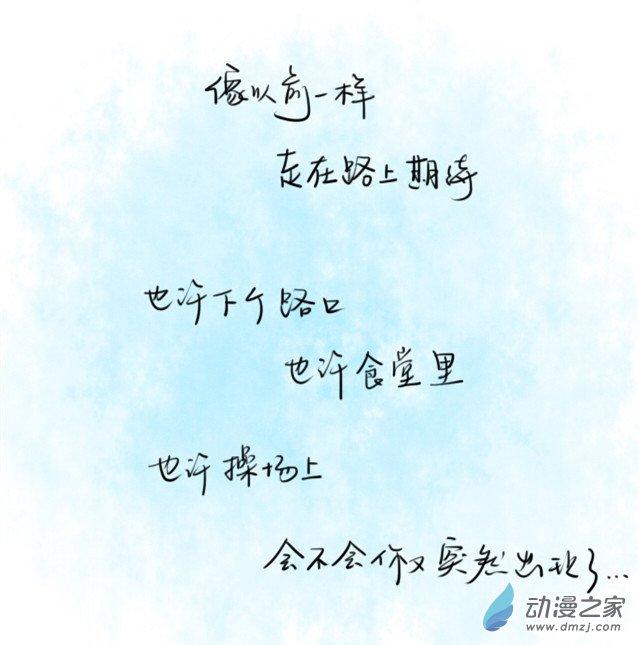 像以前一样
走在路上期待
也许下个路口
也许食堂里
也许操场上
会不会你又突然出现了...
动漫之家
www.dmzj.com